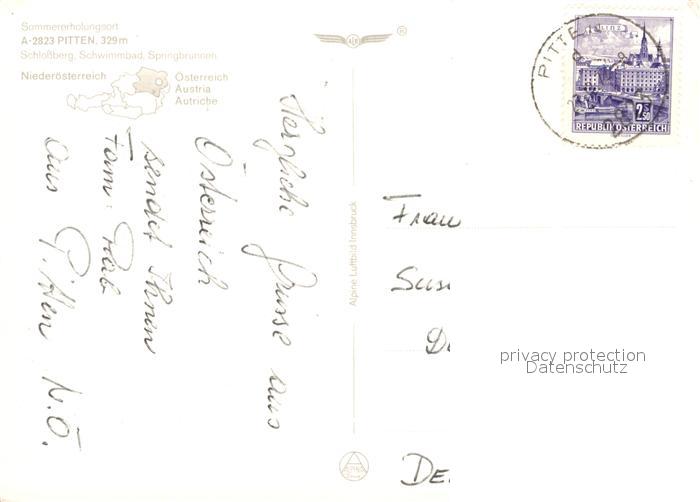 Sommererholungsort
A-2823 PITTEN, 329 m
Schloßberg, Schwimmbad, Springbrunnen
Niederösterreich
Österreich
Austria
Autriche
Herzliche Grüsse aus
Österreich
sendet Ihnen
Fam. Rab
aus Pitten N.Ö.
Alpine Luftbild Innsbruck
LINZ
2S50
REPUBLIK ÖSTERREICH
PITTE
Frau
Sus
D
DE
privacy protection
Datenschutz